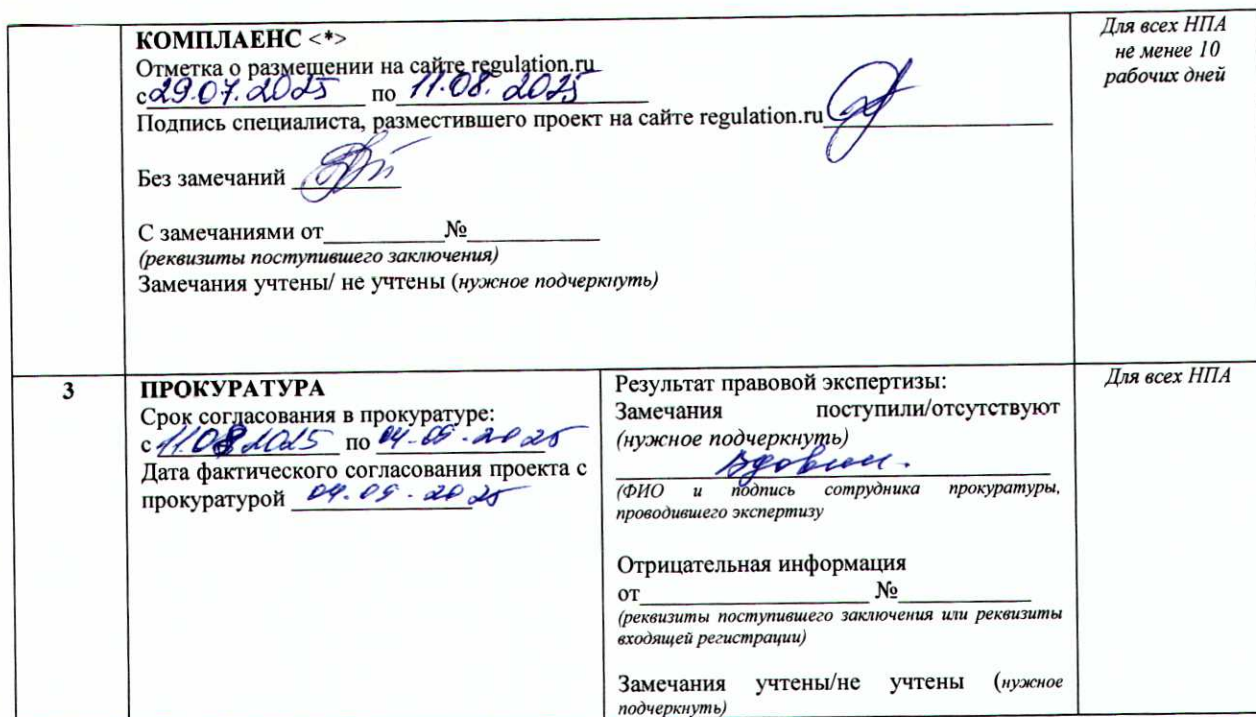 КОМПЛАЕНС <*>
Отметка о размещении на сайте regulation.ru
с 29.07.2025 по 11.08.2025
Подпись специалиста, разместившего проект на сайте regulation.ru
Без замечаний
С замечаниями от____________№_____________
(реквизиты поступившего заключения)
Замечания учтены/ не учтены (нужное подчеркнуть)
Для всех НПА
не менее 10
рабочих дней
3
ПРОКУРАТУРА
Срок согласования в прокуратуре:
с 11.08.2025 по 04.09.2025
Дата фактического согласования проекта с
прокуратурой 04.09.2025
Результат правовой экспертизы:
Замечания поступили/отсутствуют
(нужное подчеркнуть)
(ФИО и подпись сотрудника прокуратуры,
проводившего экспертизу
Отрицательная информация
от_______________________ №_____________
(реквизиты поступившего заключения или реквизиты
входящей регистрации)
Замечания учтены/не учтены (нужное
подчеркнуть)
Для всех НПА